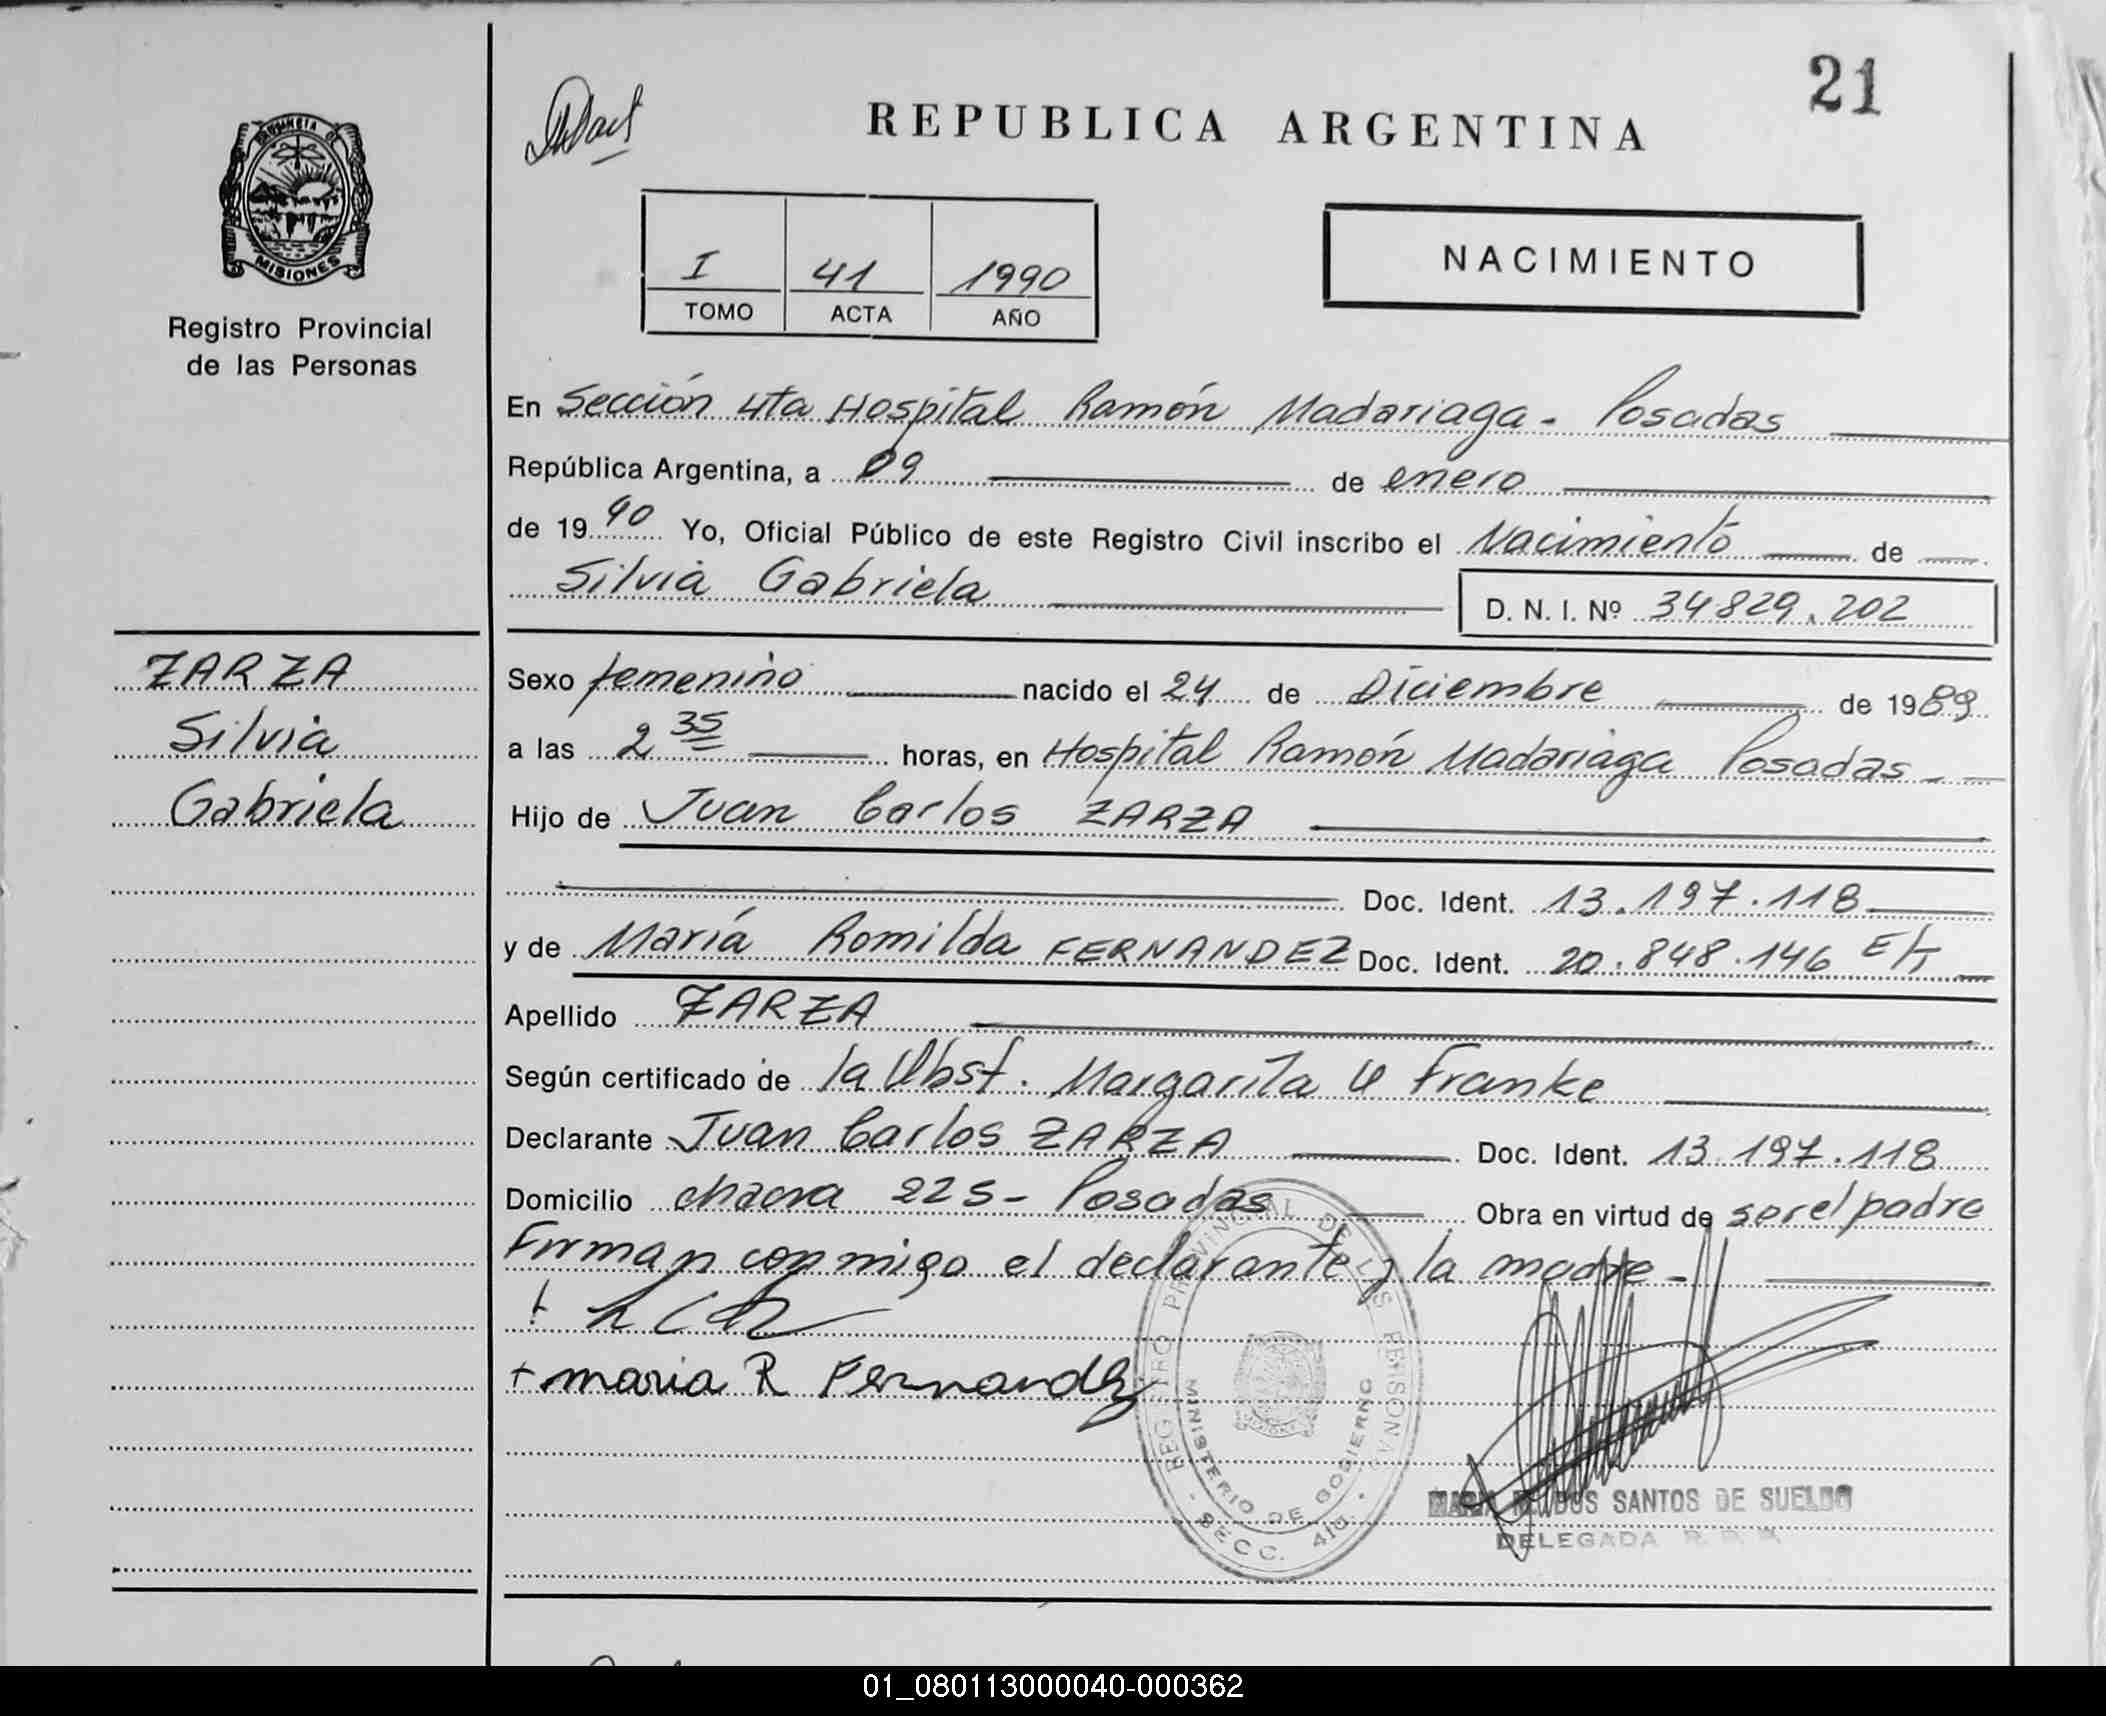 21
REPUBLICA ARGENTINA
PROVINCIA DE
MISIONES
Registro Provincial
de las Personas
I 41 1990
TOMO ACTA AÑO
NACIMIENTO
En Sección 4ta Hospital Ramón Madariaga - Posadas
República Argentina, a 09 de enero
de 1990 Yo, Oficial Público de este Registro Civil inscribo el Nacimiento de
Silvia Gabriela
D. N. I. Nº 34829.202
ZARZA
Silvia
Gabriela
Sexo femenino nacido el 24 de Diciembre de 1989
a las 2 35 horas, en Hospital Ramón Madariaga Posadas -
Hijo de Juan Carlos ZARZA
Doc. Ident. 13.197.118
y de María Romilda FERNANDEZ Doc. Ident. 20.848.146
Apellido ZARZA
Según certificado de la Obst. Margarita U Franke
Declarante Juan Carlos ZARZA Doc. Ident. 13.197.118
Domicilio chacra 225 - Posadas Obra en virtud de ser el padre
Firman conmigo el declarante y la madre -
+ maria R Fernandez
REGISTRO PROVINCIAL DE LAS PERSONAS
MINISTERIO DE GOBIERNO
SECC. 4ta.
DOS SANTOS DE SUELDO
DELEGADA
01_080113000040-000362